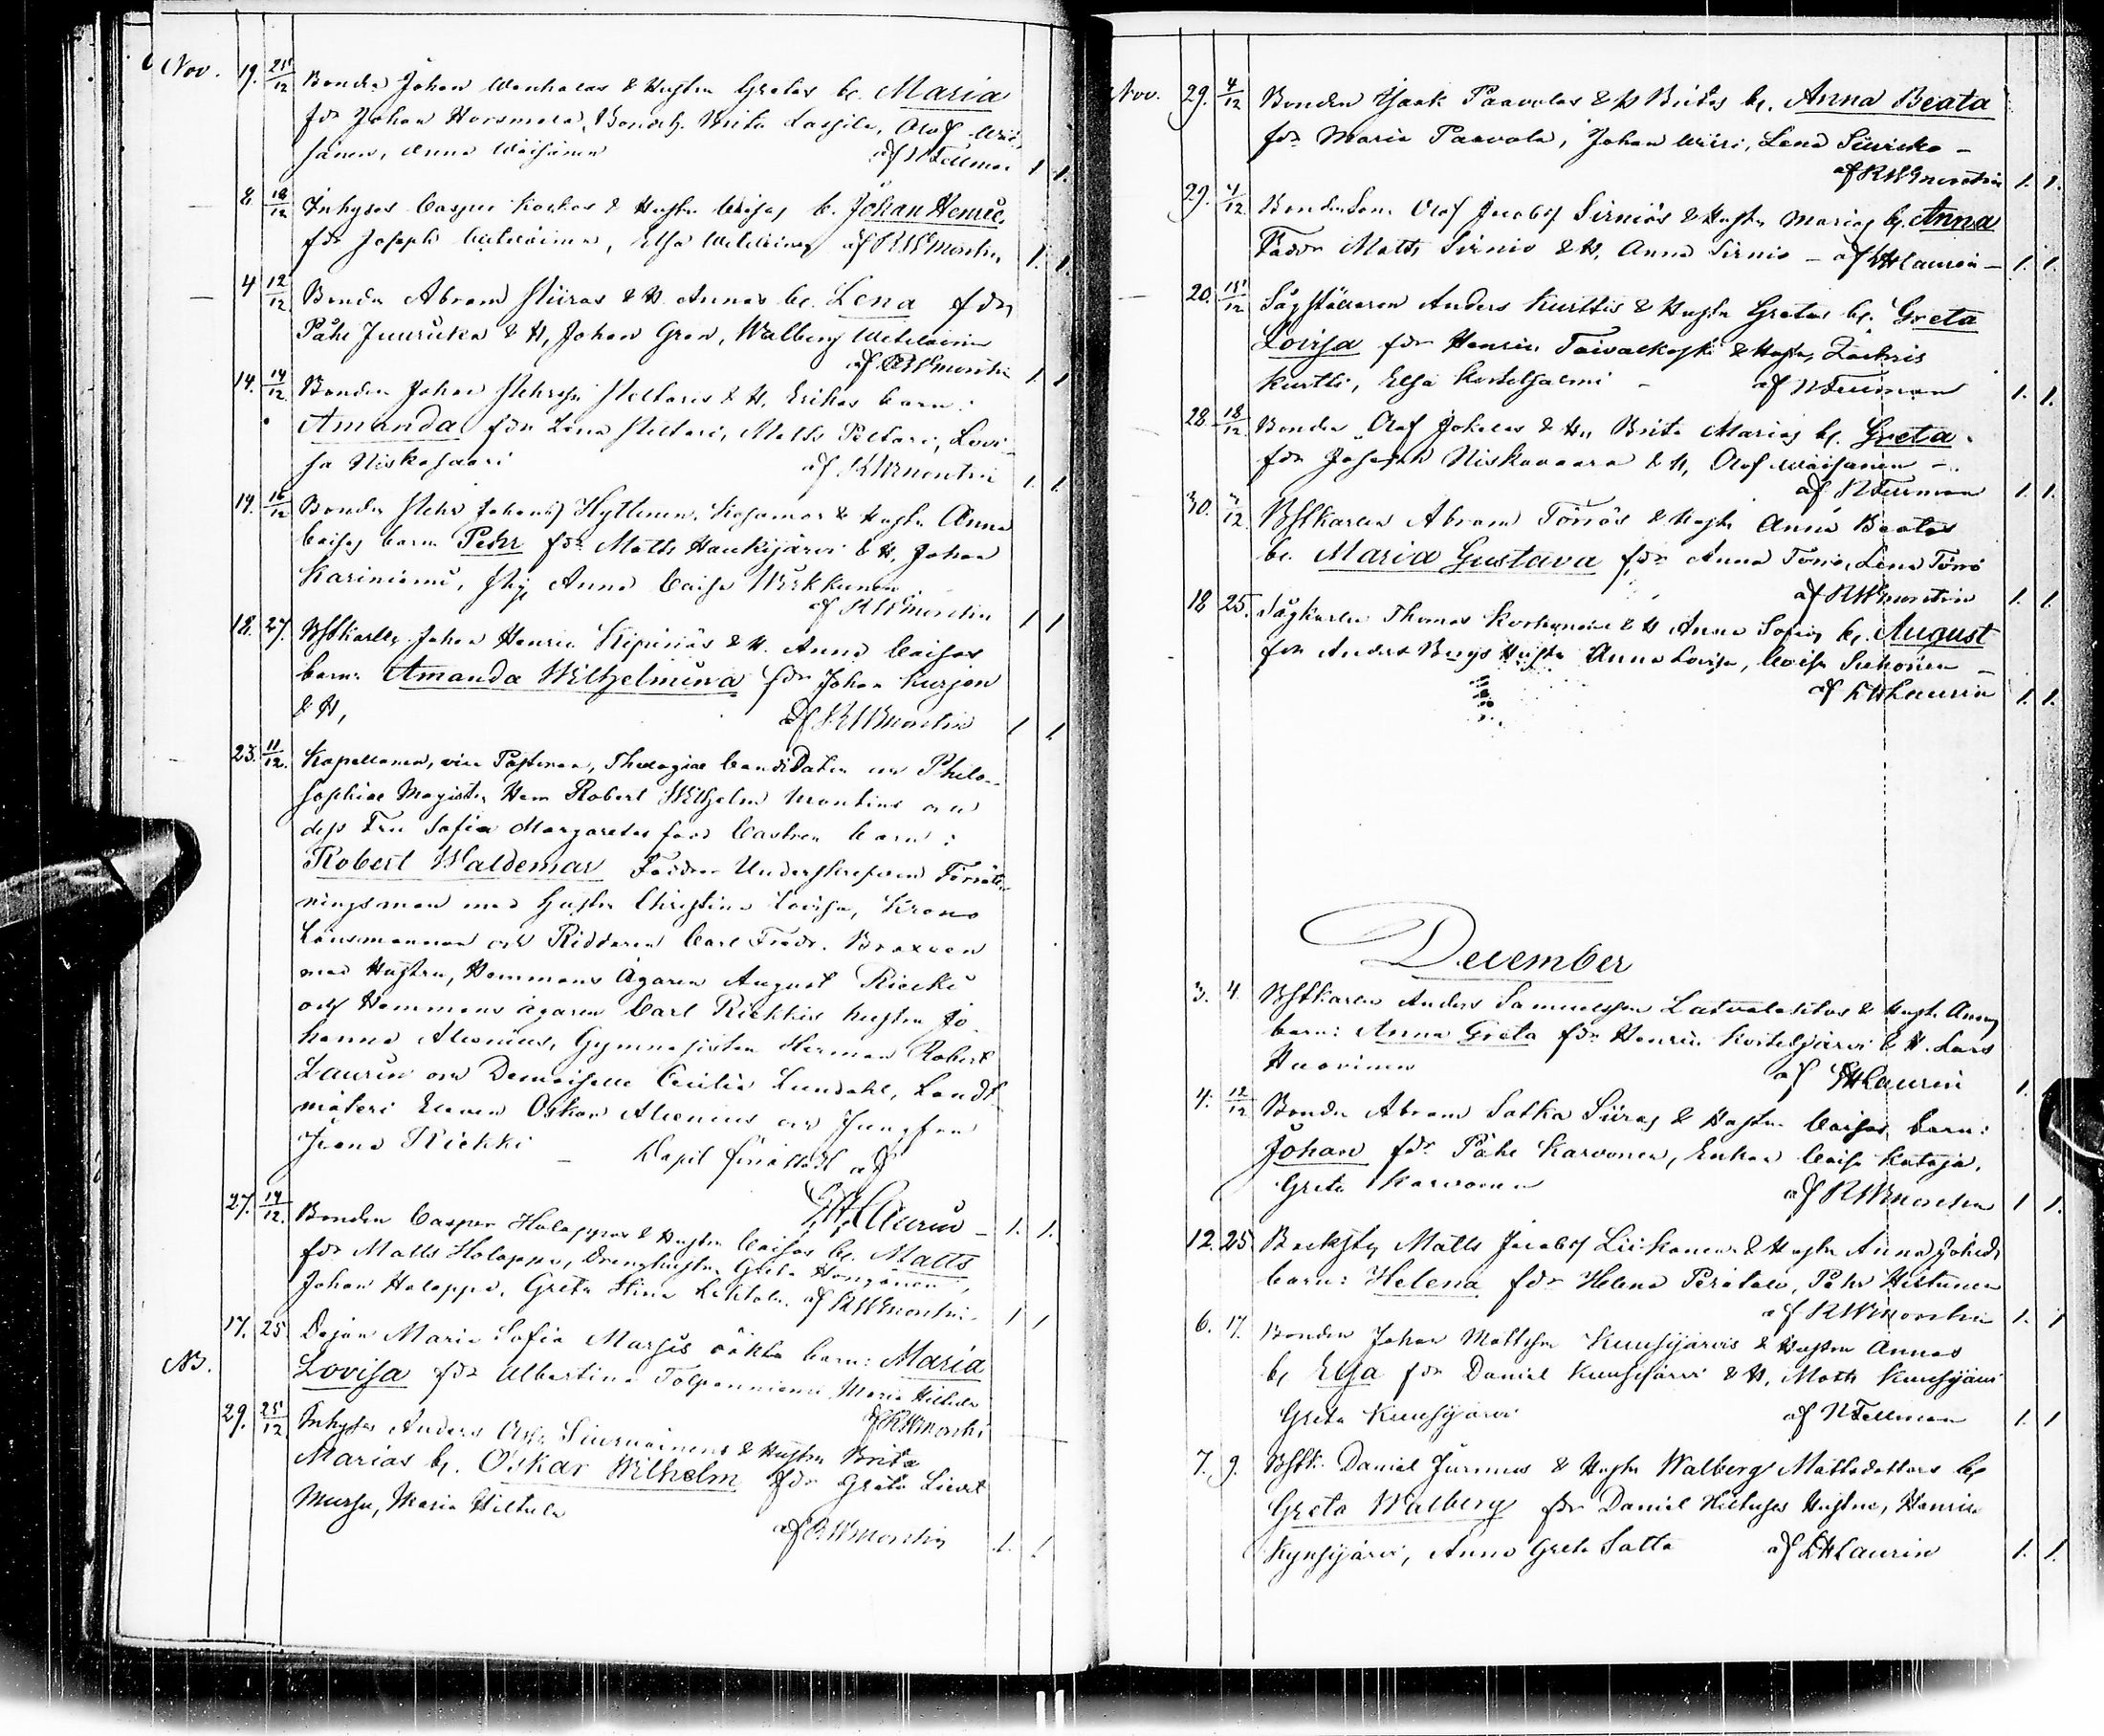 Nov. 19. 25/12 Bonden Johan Wanhalas & Hustru Gretas bn. Maria
fdr Johan Horsmala, Bondeh. Brita Lassila, Olof Wäi-
sänen, Anna Wäisänen af N Fellman 1 1.
8 18/12 Inhyses Caspar Koskos & Hustru Caisas b. Johan Henric
fdr Joseph Weteläinen, Elsa Weteläinen af RWMontin 1. 1.
4 12/12 Bonden Abram Siiras & H. Annas bn. Lena fdr
Pähr Juurikka & H, Johan Gran, Walberg Weteläinen
af RWMontin 1. 1
14. 14/12 Bonden Johan Pehrsson Peltaris & H. Erikas barn:
Amanda fdr Lena Peltari, Matts Peltari, Lovi-
sa Niskasaari af RWMontin 1. 1.
14. 16/12 Bonden Pehr Johans Hyttinen, Kusamo & Hustru Anna
Caisas barn Pehr fdr Matts Haukijärvi & H. Johan
Kariniemi, Anna Caisa Wirkkunen
af RWMontin 1 1
18. 27. Bstkarlen Johan Henric Kipinäs & H. Anna Caisas
barn: Amanda Wilhelmina fdr Johan Kurjon
& H, af RWMontin 1 1.
23. 11/12. Kapellanen, vice Pastoren, Theologiae Candidaten och Philo-
sophiae Magister Herr Robert Wilhelm Montins och
dess Fru Sofia Margaretas född Castren barn:
Robert Waldemar Faddrar Underskrefvan Förrätt-
ningsman med Hustru Christina Lovisa, Krono
Länsmannen och Riddaren Carl Fredr. Boxeen
med Hustru, Hemmans Ägaren August Riekki
och Hemmans ägaren Carl Riekkis hustru Jo-
hanna Alcenius, Gymnasisten Herman Robert
Laurin och Demoiselle Cecilia Lundahl, Landt-
mäteri Eleven Oskar Alcenius och Jungfrun
Riekki Döpit förrättadt af
LHLaurin 1. 1.
27. 14/12. Bonden Caspar Holappas & Hustru Caisas bn. Matts
fdr Matts Holappa, Drenghustru Greta Hongänen,
Johan Holappa, Greta Stina Lehtola. af RWMontin. 1 1
NB. 17. 25 Dejan Maria Sofia Marsis oäkta barn: Maria
Lovisa fdr Albertina Tolpanniemi Maria Hiltula
af RWMontin
29. 25/12 Inhyses Anders Siurnainens & Hustru Brita
Marias bn. Oskar Wilhelm fdr Greta
Mursu, Maria Hiltula
af RWMontin 1. 1.
Nov. 29. 4/12 Bonden Isaak Paavolas & H Britas bn. Anna Beata
fdr Maria Paavola, Johan Wiiri, Lena Siivicko –
af RWMontin 1. 1.
29. 4/12 Bondesonen Olof Jacobsson Sirniös & Hustru Marias bn. Anna
Faddr Matts Sirniö & H, Anna Sirniö – af LHLaurin – 1. 1.
20. 15/12 Sågställaren Anders Kurttis & Hustru Gretas bn. Greta
Lovisa fdr Henric Taivalkoski & Hustru, Zachris
Kurtti, Elsa Kostehjalmi – af NFellman 1. 1.
28 18/12 Bonden Olof Jokelas & Hu Brita Marias bn. Greta.
fdr Joseph Niskavaara & H, Olof Wäisänen –
af NFellman 1 1.
30. 3/12 Bstkarlen Abram Törrös & Hustru Anna Beatas
bn. Maria Gustava fdr Anna Törrö, Lena Törrö
af RWMontin 1. 1.
18 25. Sågkarlen Thomas Korhonens & H Anna Sofias bn. August
fdr Anders Bergs Hustru Anna Lovisa, Caisa Seikonen –
af LHLaurin 1. 1.
December
3. 4. Bstkarlen Anders Samuelsson Latvalehtos & Hust. Annas
barn: Anna Greta fdr Henric Koiteljärvi & H. Lars
Huovinen af LHLaurin 1.
4. 12/12 Bonden Abram Satka Siiras & Hustru Caisas barn:
Johan fdr Pähr Karvonen, Enkan Caisa Kataja,
Greta Karvonen af RWMontin 1 1.
12. 25 Backstg Matts Jacobss Liikanens & Hustru Anna Johsd
barn: Helena fdr Helena Perätalo, Pehr Hiltunen
af RWMontin 1. 1
6. 17. Bonden Johan Mattsson Kuusijärvis & Hustru Annas
bn Elsa fdr Daniel Kuusijärvi & H, Matts Kuusijärvi
Greta Kuusijärvi af NFellman 1. 1
7. 9. Bstk. Daniel Jurmus & Hustru Walberg Mattsdotters bn
Greta Walberg fdr Daniel Hiltuses Hustru, Henric
Kynsijärvi, Anna Greta Salla af LHLaurin 1. 1.